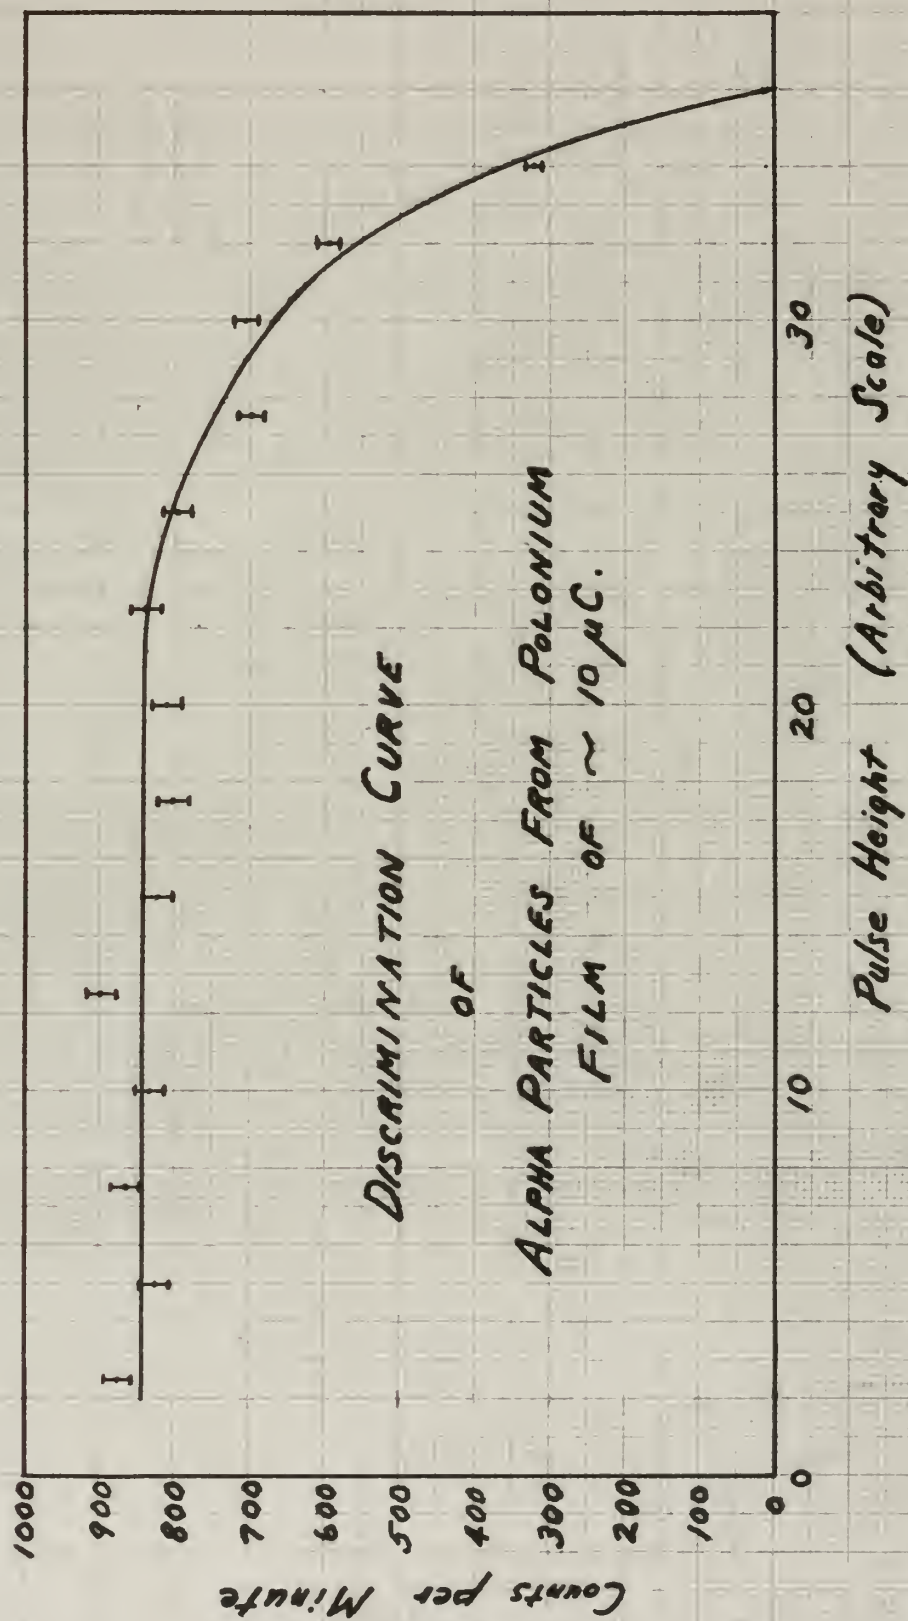 1000
900
800
700
600
500
400
300
200
100
0
Counts per Minute
DISCRIMINATION CURVE
OF
ALPHA PARTICLES FROM POLONIUM
FILM OF ~ 10 μC.
0 10 20 30
Pulse Height (Arbitrary Scale)